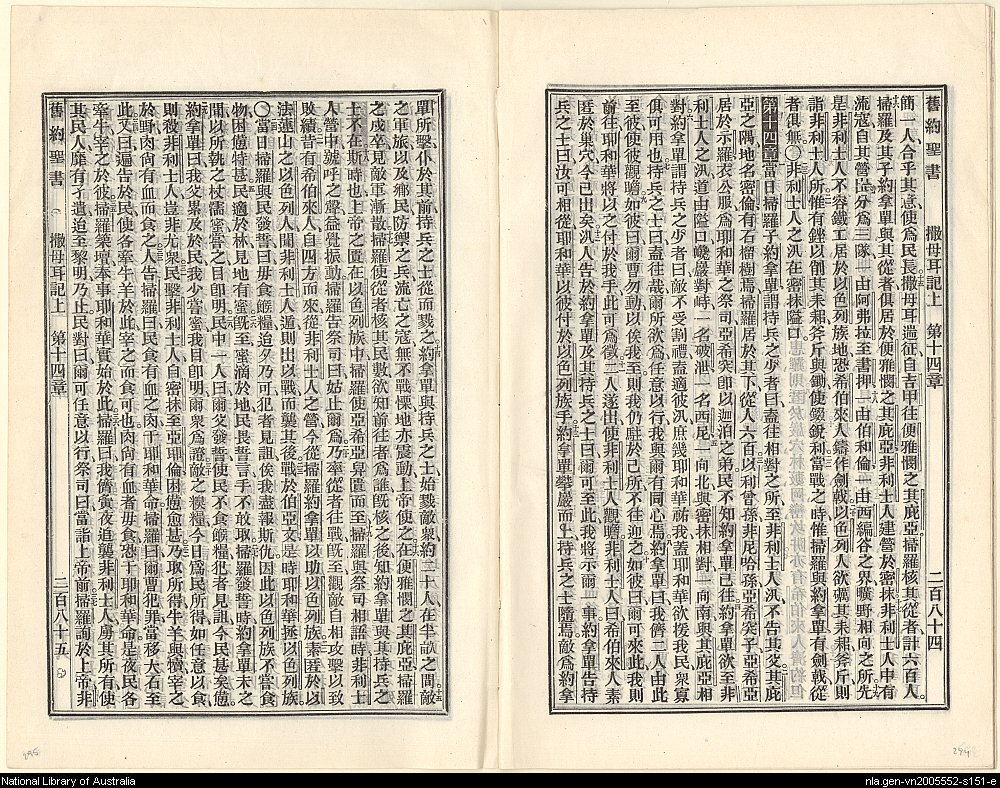 舊約聖書 撒母耳記上 第十四章 二百八十四
簡一人合乎其意使爲民長撒母耳遄征自吉甲往便雅憫之其庇亞掃羅核其從者計六百人
掃羅及其子約拿單與其從者俱居於便雅憫之其庇亞非利士人建營於密抹非利士人中有
流寇自其營出分爲三隊一由阿弗拉至書押一由伯和倫一由西編谷之界曠野相向之所先
是非利士人不容鐵工居於以色列族地恐希伯來人鑄作劍戟以色列人欲礪其耒耜斧斤則
詣非利士人所惟有銼以創其耒耜斧斤與鋤使銳利當戰之時惟掃羅與約拿單有劍戟從
者俱無〇非利士人之汛在密抹隘口
第十四章當日掃羅子約拿單謂持兵之少者曰盍往相對之所至非利士人汛不告其父其庇
亞之隅地名密倫有石榴樹焉掃羅居於其下從人六百以利曾孫非尼哈孫亞希突子亞希亞
居於示羅衣公服爲耶和華之祭司亞希突卽以迦泊之弟民不知約拿單已往約拿單欲至非
利士人之汛道由隘口巉巖對峙一名破泄一名西尼一向北與密抹相對一向南與其庇亞相
對約拿單謂持兵之少者曰敵不受割禮盍適彼汛庶幾耶和華祐我蓋耶和華欲援我民眾寡
俱可用也持兵之士曰盍往哉爾所欲爲任意以行我與爾有同心焉約拿單曰我儕二人由此
至彼使彼觀瞻如彼曰爾曹勿動以俟我至則我仍駐於己所不往迎之如彼曰爾可來此我則
前往耶和華將以之付於我手此可爲徵二人遂出使非利士人觀瞻非利士人曰希伯來人素
匿於巢穴今已出矣汛人告於約拿單及其持兵之士曰爾可至此我將示爾一事約拿單告持
兵之士曰汝可相從耶和華以彼付於以色列族手約拿單攀巖而上持兵之士隨焉敵爲約拿
單所擊仆於其前持兵之士從而戮之約拿單與持兵之士始戮敵眾約二十人在半畝之間敵
之軍旅以及鄉民防禦之兵流亡之寇無不戰慄地亦震動上帝使之在便雅憫之其庇亞掃羅
之戍卒見敵軍漸散掃羅使從者核其民數欲知前往者爲誰旣核之後知約拿單與其持兵之
士不在斯時也上帝之匱在以色列族中掃羅使亞希亞舁匱而至掃羅與祭司相語時非利士
人營中號呼之聲益覺振動掃羅告祭司曰姑止爾爲乃率從者往戰旣至觀敵自相攻擊以致
敗績昔有希伯來人自四方而來從非利士人之營今從掃羅約拿單以助以色列族素匿於以
法蓮山之以色列人聞非利士人遁則出以戰而襲其後戰於伯亞文是時耶和華拯以色列族
〇當日掃羅與民發誓曰毋食餱糧迨夕乃可犯者見詛俟我盡報斯仇因此以色列族不嘗食
物困憊特甚民適於林見地有蜜旣至蜜滴於地民畏誓言手不敢取掃羅發誓時約拿單未之
聞以所執之杖濡蜜嘗之目卽明民中一人曰爾父發誓使民不食餱糧犯者見詛今民甚矣憊
約拿單曰我父累及於民我少嘗蜜我目卽明爾眾爲證敵之糗糧今日爲民所得如任意以食
則殺非利士人豈非尤眾民擊非利士人自密抹至亞耶倫困憊愈甚乃取所得牛羊與犢宰之
於野肉尚有血而食之人告掃羅曰民食有血之肉干耶和華命掃羅曰爾曹犯罪當移大石至
此又曰遍告於民使各牽牛羊於此宰之而食可也肉尚有血者毋食恐干耶和華命是夜民各
牽牛宰之於彼掃羅築壇奉事耶和華實始於此掃羅曰我儕夤夜追襲非利士人虜其所有使
其民人靡有孑遺迨至黎明乃止民對曰爾可任意以行祭司曰當詣上帝前掃羅諭於上帝非
舊約聖書 撒母耳記上 第十四章 二百八十五
295
294
National Library of Australia
nla.gen-vn2005552-s151-e